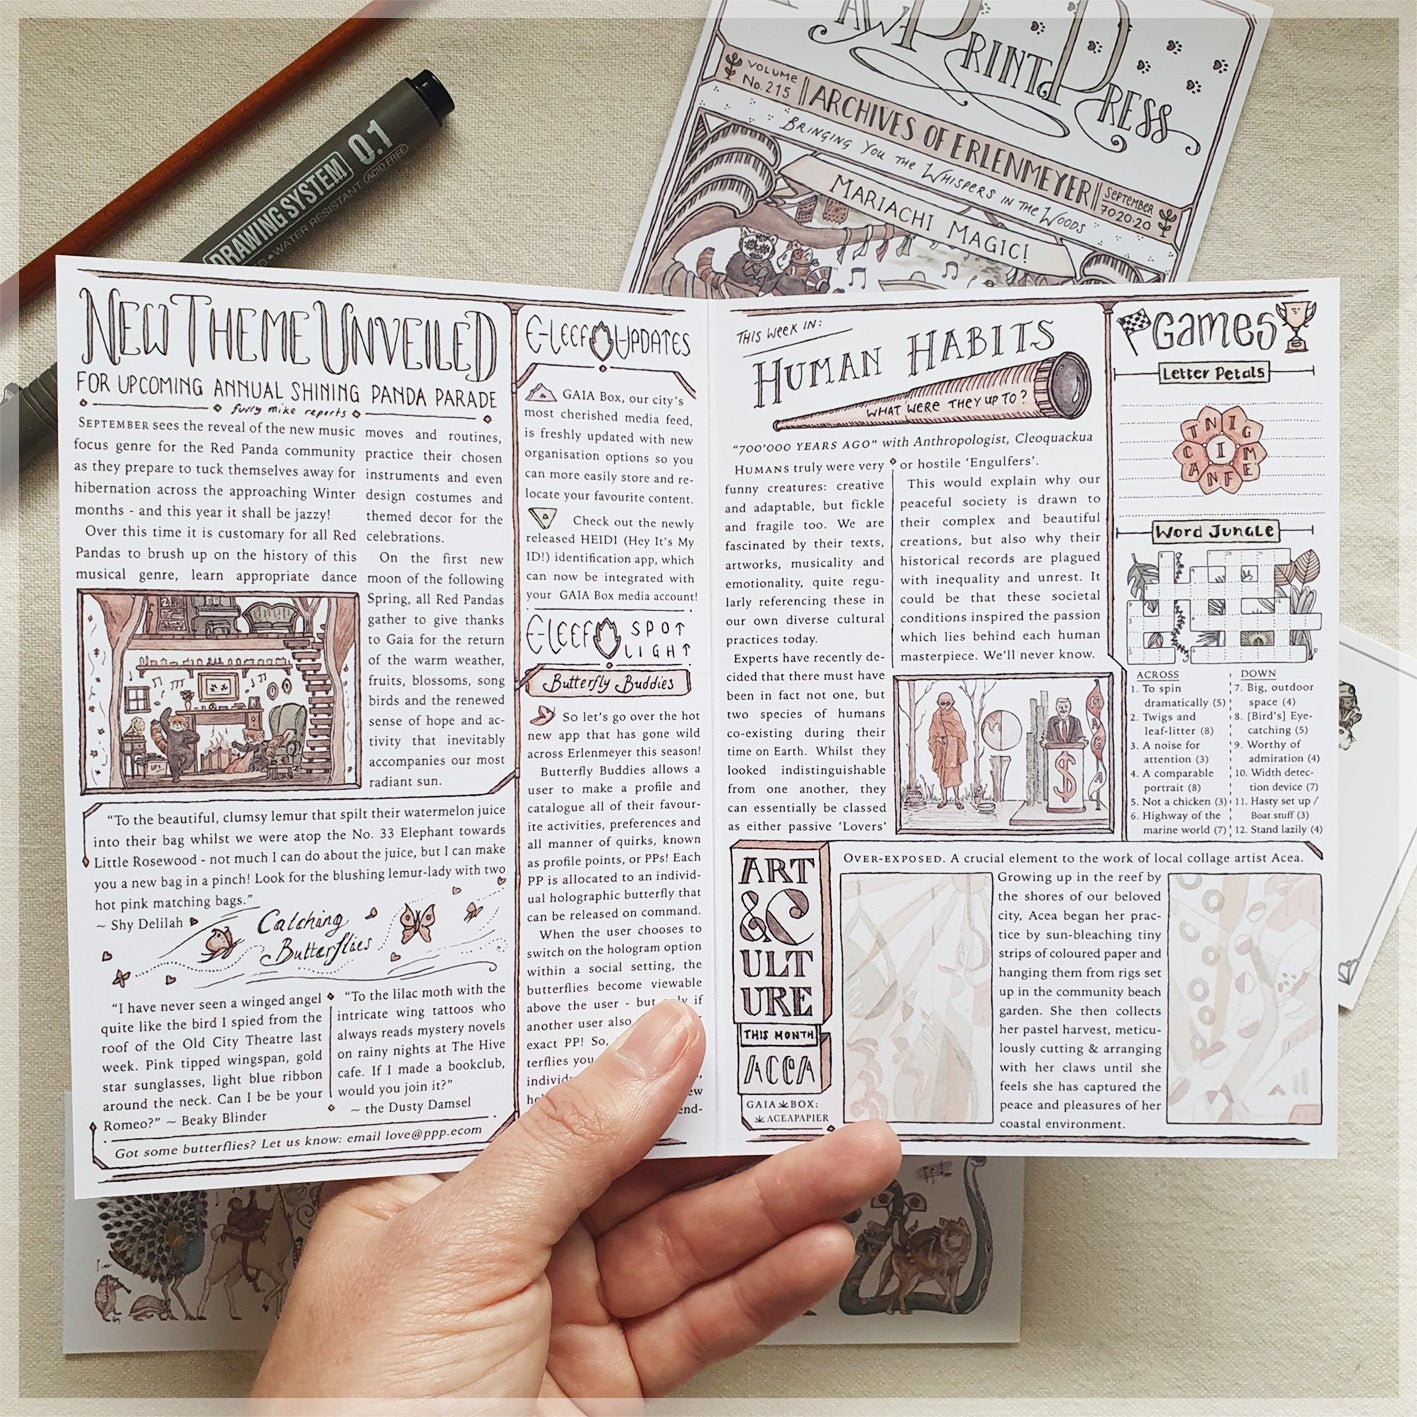 DRAWING.SYSTEM 0.1
WATER RESISTANT (ACID FREE)
PRINT PRESS
VOLUME
No. 215
ARCHIVES OF ERLENMEYER
SEPTEMBER
7020.20
BRINGING YOU THE WHISPERS IN THE WOODS
MARIACHI MAGIC!
NEW THEME UNVEILED
FOR UPCOMING ANNUAL SHINING PANDA PARADE
furry mike reports
SEPTEMBER sees the reveal of the new music
focus genre for the Red Panda community
as they prepare to tuck themselves away for
hibernation across the approaching Winter
months - and this year it shall be jazzy!
Over this time it is customary for all Red
Pandas to brush up on the history of this
musical genre, learn appropriate dance
moves and routines,
practice their chosen
instruments and even
design costumes and
themed decor for the
celebrations.
On the first new
moon of the following
Spring, all Red Pandas
gather to give thanks
to Gaia for the return
of the warm weather,
fruits, blossoms, song
birds and the renewed
sense of hope and ac-
tivity that inevitably
accompanies our most
radiant sun.
"To the beautiful, clumsy lemur that spilt their watermelon juice
into their bag whilst we were atop the No. 33 Elephant towards
Little Rosewood - not much I can do about the juice, but I can make
you a new bag in a pinch! Look for the blushing lemur-lady with two
hot pink matching bags."
~ Shy Delilah
Catching
Butterflies
"I have never seen a winged angel
quite like the bird I spied from the
roof of the Old City Theatre last
week. Pink tipped wingspan, gold
star sunglasses, light blue ribbon
around the neck. Can I be be your
Romeo?" ~ Beaky Blinder
"To the lilac moth with the
intricate wing tattoos who
always reads mystery novels
on rainy nights at The Hive
cafe. If I made a bookclub,
would you join it?"
~ the Dusty Damsel
Got some butterflies? Let us know: email love@ppp.ecom
E-LEEF UPDATES
GAIA Box, our city's
most cherished media feed,
is freshly updated with new
organisation options so you
can more easily store and re-
locate your favourite content.
Check out the newly
released HEIDI (Hey It's My
ID!) identification app, which
can now be integrated with
your GAIA Box media account!
E-LEEF SPOT
LIGHT
Butterfly Buddies
So let's go over the hot
new app that has gone wild
across Erlenmeyer this season!
Butterfly Buddies allows a
user to make a profile and
catalogue all of their favour-
ite activities, preferences and
all manner of quirks, known
as profile points, or PPs! Each
PP is allocated to an individ-
ual holographic butterfly that
can be released on command.
When the user chooses to
switch on the hologram option
within a social setting, the
butterflies become viewable
above the user - but if
another user also
exact PP! So,
terflies you
individ
THIS WEEK IN:
HUMAN HABITS
WHAT WERE THEY UP TO?
"700'000 YEARS AGO" with Anthropologist, Cleoquackua
HUMANS truly were very
funny creatures: creative
and adaptable, but fickle
and fragile too. We are
fascinated by their texts,
artworks, musicality and
emotionality, quite regu-
larly referencing these in
our own diverse cultural
practices today.
Experts have recently de-
cided that there must have
been in fact not one, but
two species of humans
co-existing during their
time on Earth. Whilst they
looked indistinguishable
from one another, they
can essentially be classed
as either passive 'Lovers'
or hostile 'Engulfers'.
This would explain why our
peaceful society is drawn to
their complex and beautiful
creations, but also why their
historical records are plagued
with inequality and unrest. It
could be that these societal
conditions inspired the passion
which lies behind each human
masterpiece. We'll never know.
$
Games
Letter Petals
T N I G
C I M
A N F E
Word Jungle
ACROSS
1. To spin
dramatically (5)
2. Twigs and
leaf-litter (8)
3. A noise for
attention (3)
4. A comparable
portrait (8)
5. Not a chicken (3)
6. Highway of the
marine world (7)
DOWN
7. Big, outdoor
space (4)
8. [Bird's] Eye-
catching (5)
9. Worthy of
admiration (4)
10. Width detec-
tion device (7)
11. Hasty set up /
Boat stuff (3)
12. Stand lazily (4)
ART
& C
ULT
URE
THIS MONTH
ACEA
GAIA BOX:
ACEAPAPIER
OVER-EXPOSED. A crucial element to the work of local collage artist Acea.
Growing up in the reef by
the shores of our beloved
city, Acea began her prac-
tice by sun-bleaching tiny
strips of coloured paper and
hanging them from rigs set
up in the community beach
garden. She then collects
her pastel harvest, meticu-
lously cutting & arranging
with her claws until she
feels she has captured the
peace and pleasures of her
coastal environment.